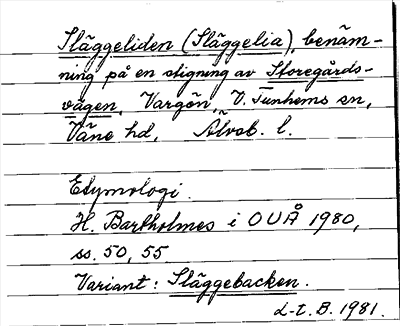 Släggeliden (Släggelia), benäm-
ning på en stigning av Storegårds-
vägen, Vargön, V. Tunhems sn,
Väne hd, Älvsb. l.
Etymologi.
H. Bartholmes i OUÅ 1980,
ss. 50, 55
Variant: Släggebacken.
L-t. B. 1981.